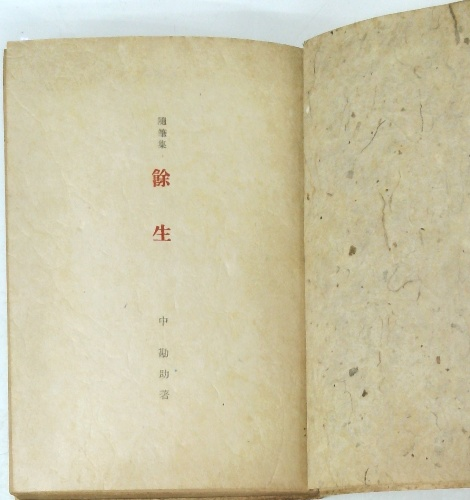 隨筆集
餘生
中勘助著